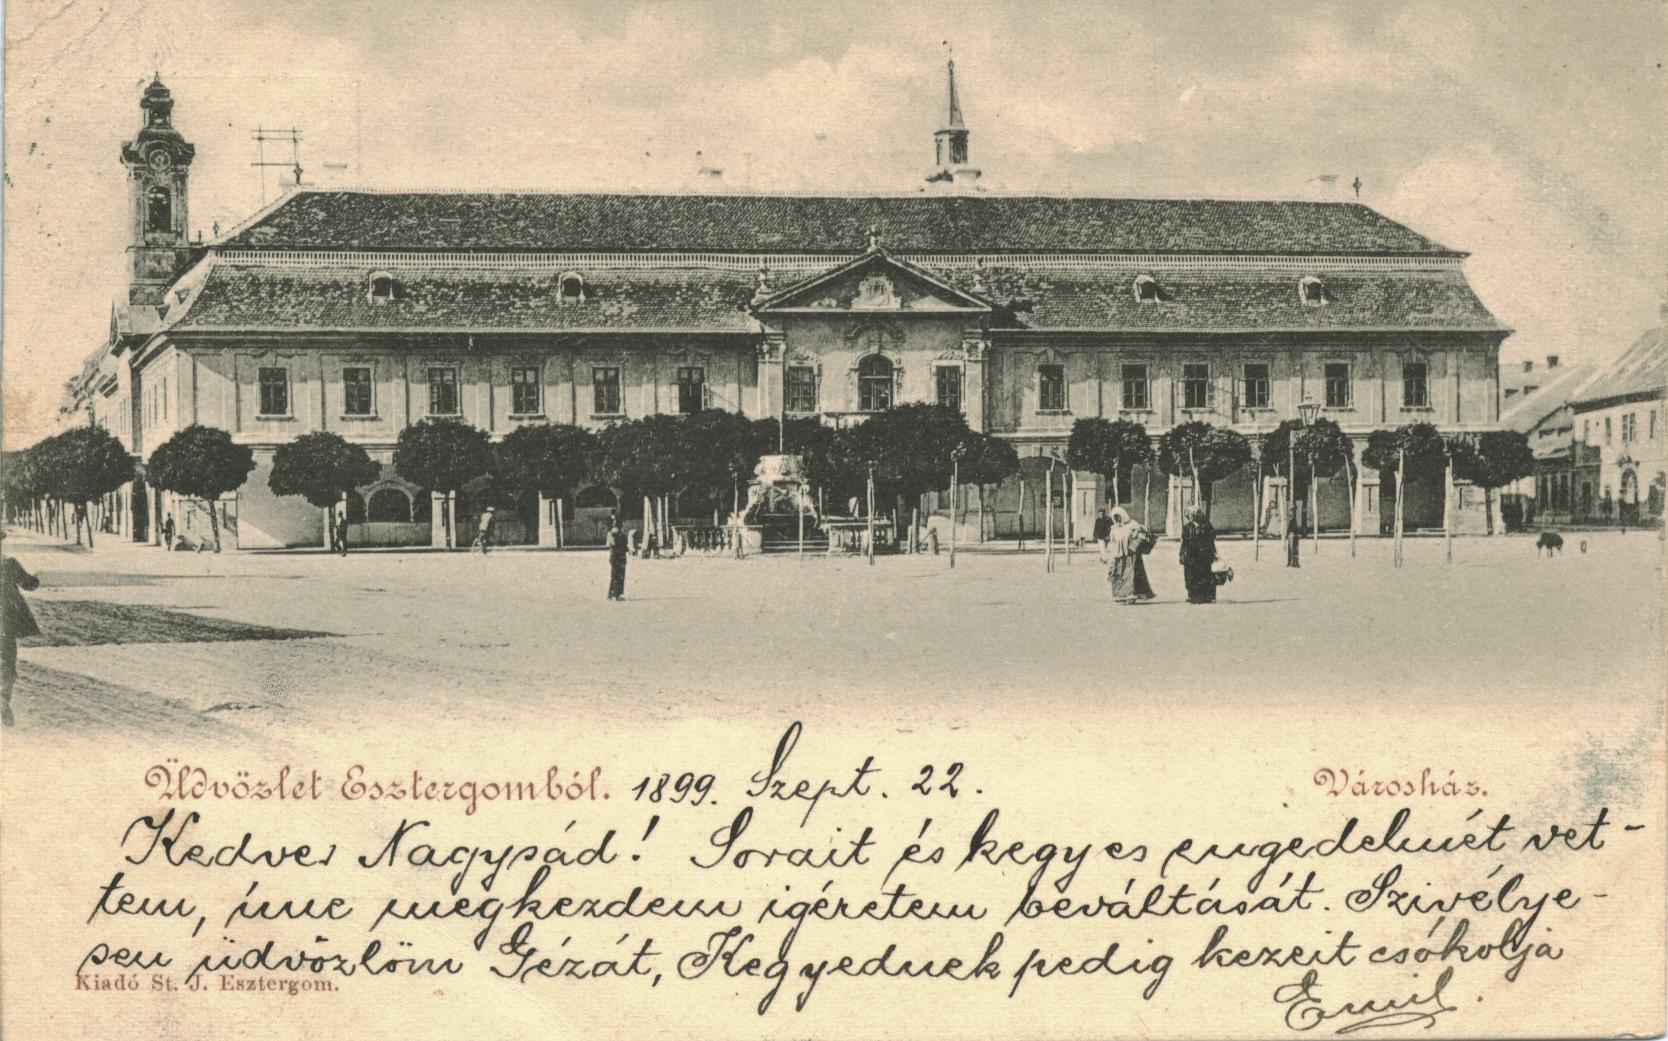 Üdvözlet Esztergomból. 1899. Szept. 22. Városház.
Kedves Nagysád! Sorait és kegyes engedelmét vet-
tem, íme megkezdem igéretem beváltását. Szivélye-
sen üdvözlöm Gézát, Kegyednek pedig kezeit csókolja
Kiadó St. J. Esztergom.
Emil.